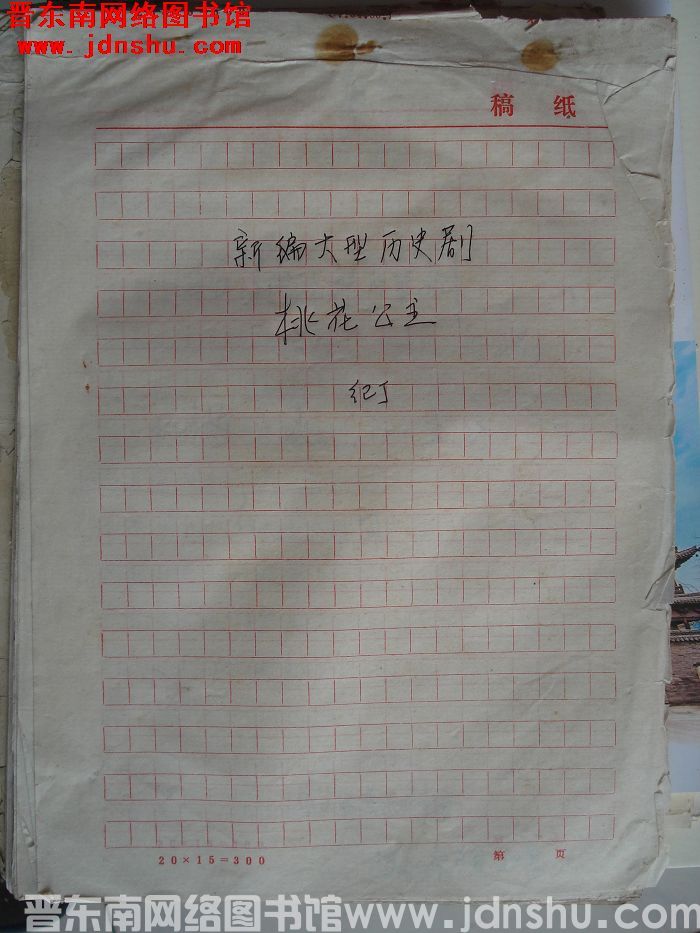 晋东南网络图书馆
www.jdnshu.com
稿 纸
新编大型历史剧
桃花公主
纪丁
20×15=300
第 页
晋东南网络图书馆馆www.jdnshu.com